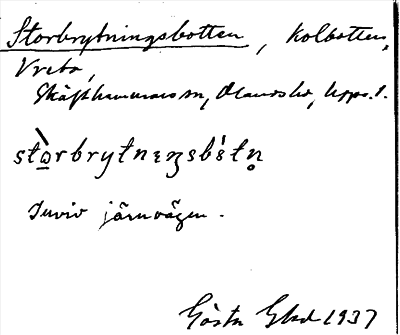 Storbrytningsbotten, kolbotten,
Vreta,
Skäfthammars sn, Olands hd, Upps. l.
stɷ̀rbrytnɩŋsbɛ́tn̥
Invid järnvägen.
Gösta Ehd 1937